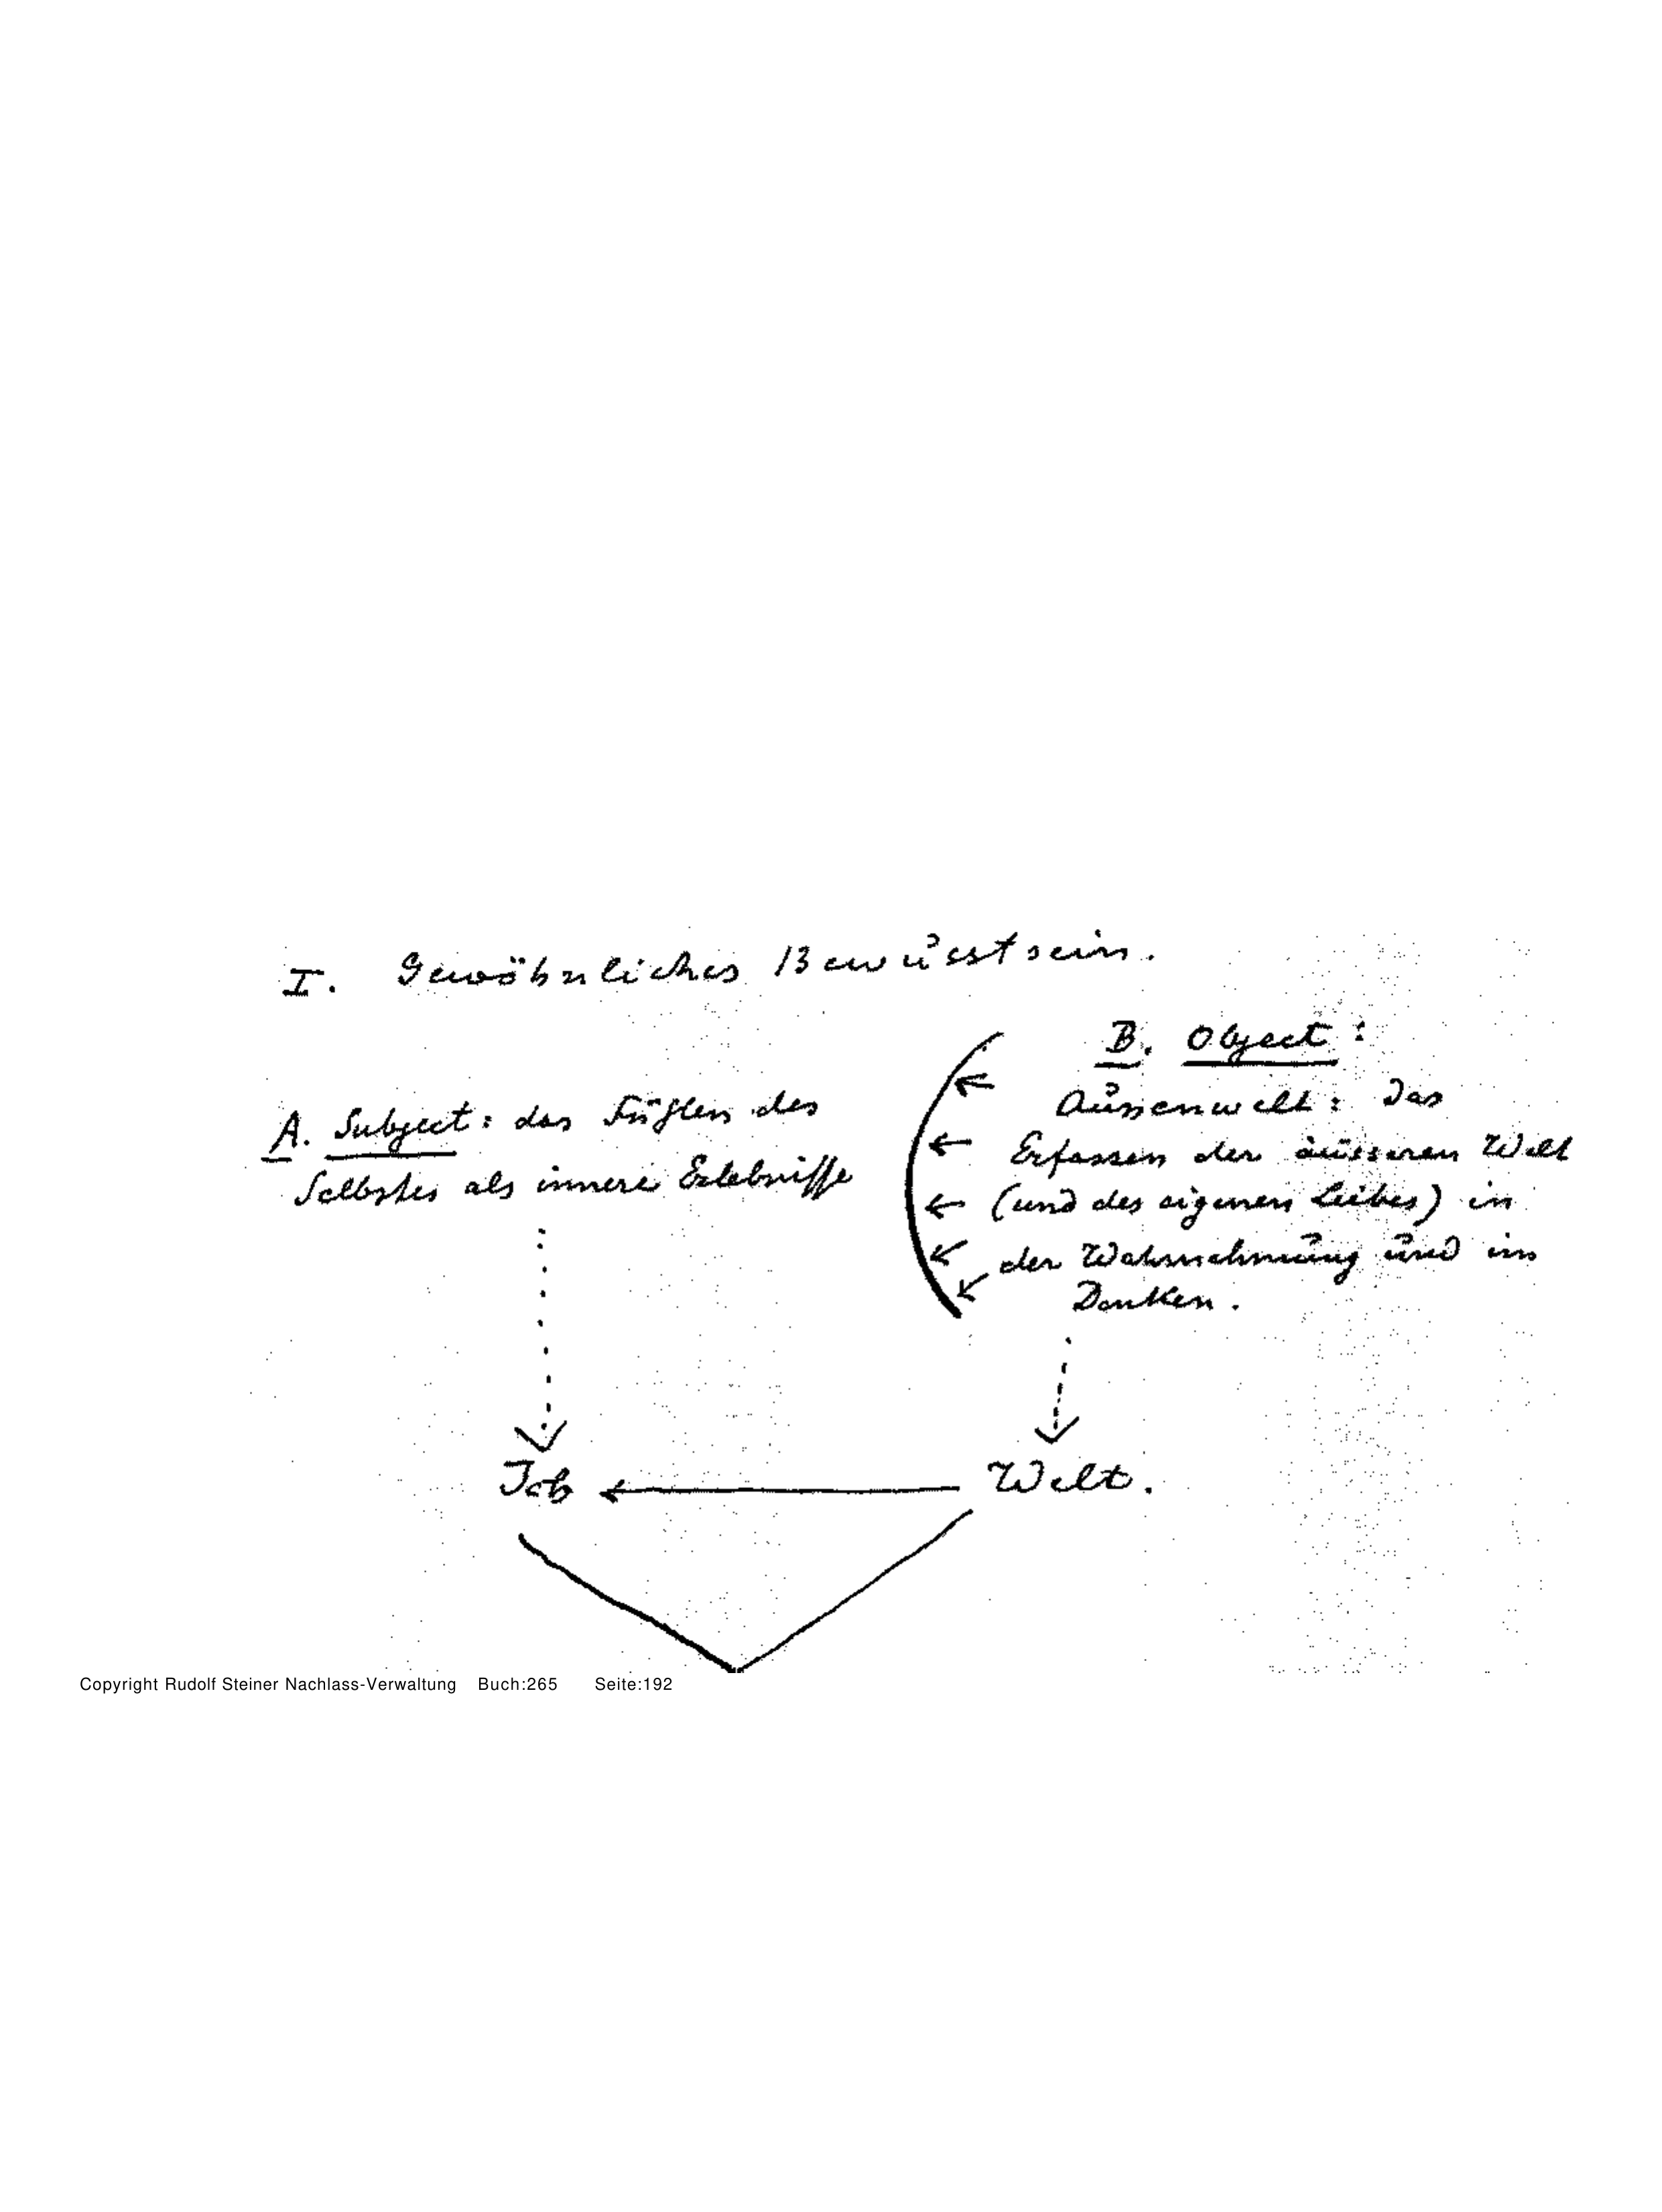 I. Gewöhnliches Bewusstsein.
A. Subject: das Fühlen des
Selbstes als innere Erlebnisse
B. Object:
Aussenwelt: Das
Erfassen der äusseren Welt
(und des eigenen Leibes) in
der Wahrnehmung und im
Denken.
Ich
Welt.
Copyright Rudolf Steiner Nachlass-Verwaltung Buch:265 Seite:192